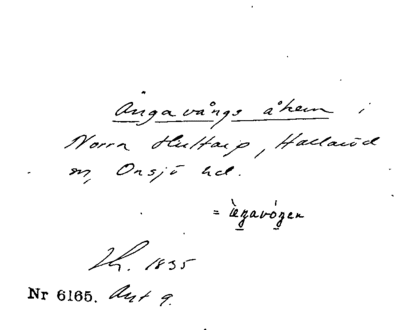 Ängavångs åkern i
Norra Hultarp, Hallaröd
sn, Onsjö hd.
= ìegavógen
Lh. 1835
Nr 6165. Akt 9.